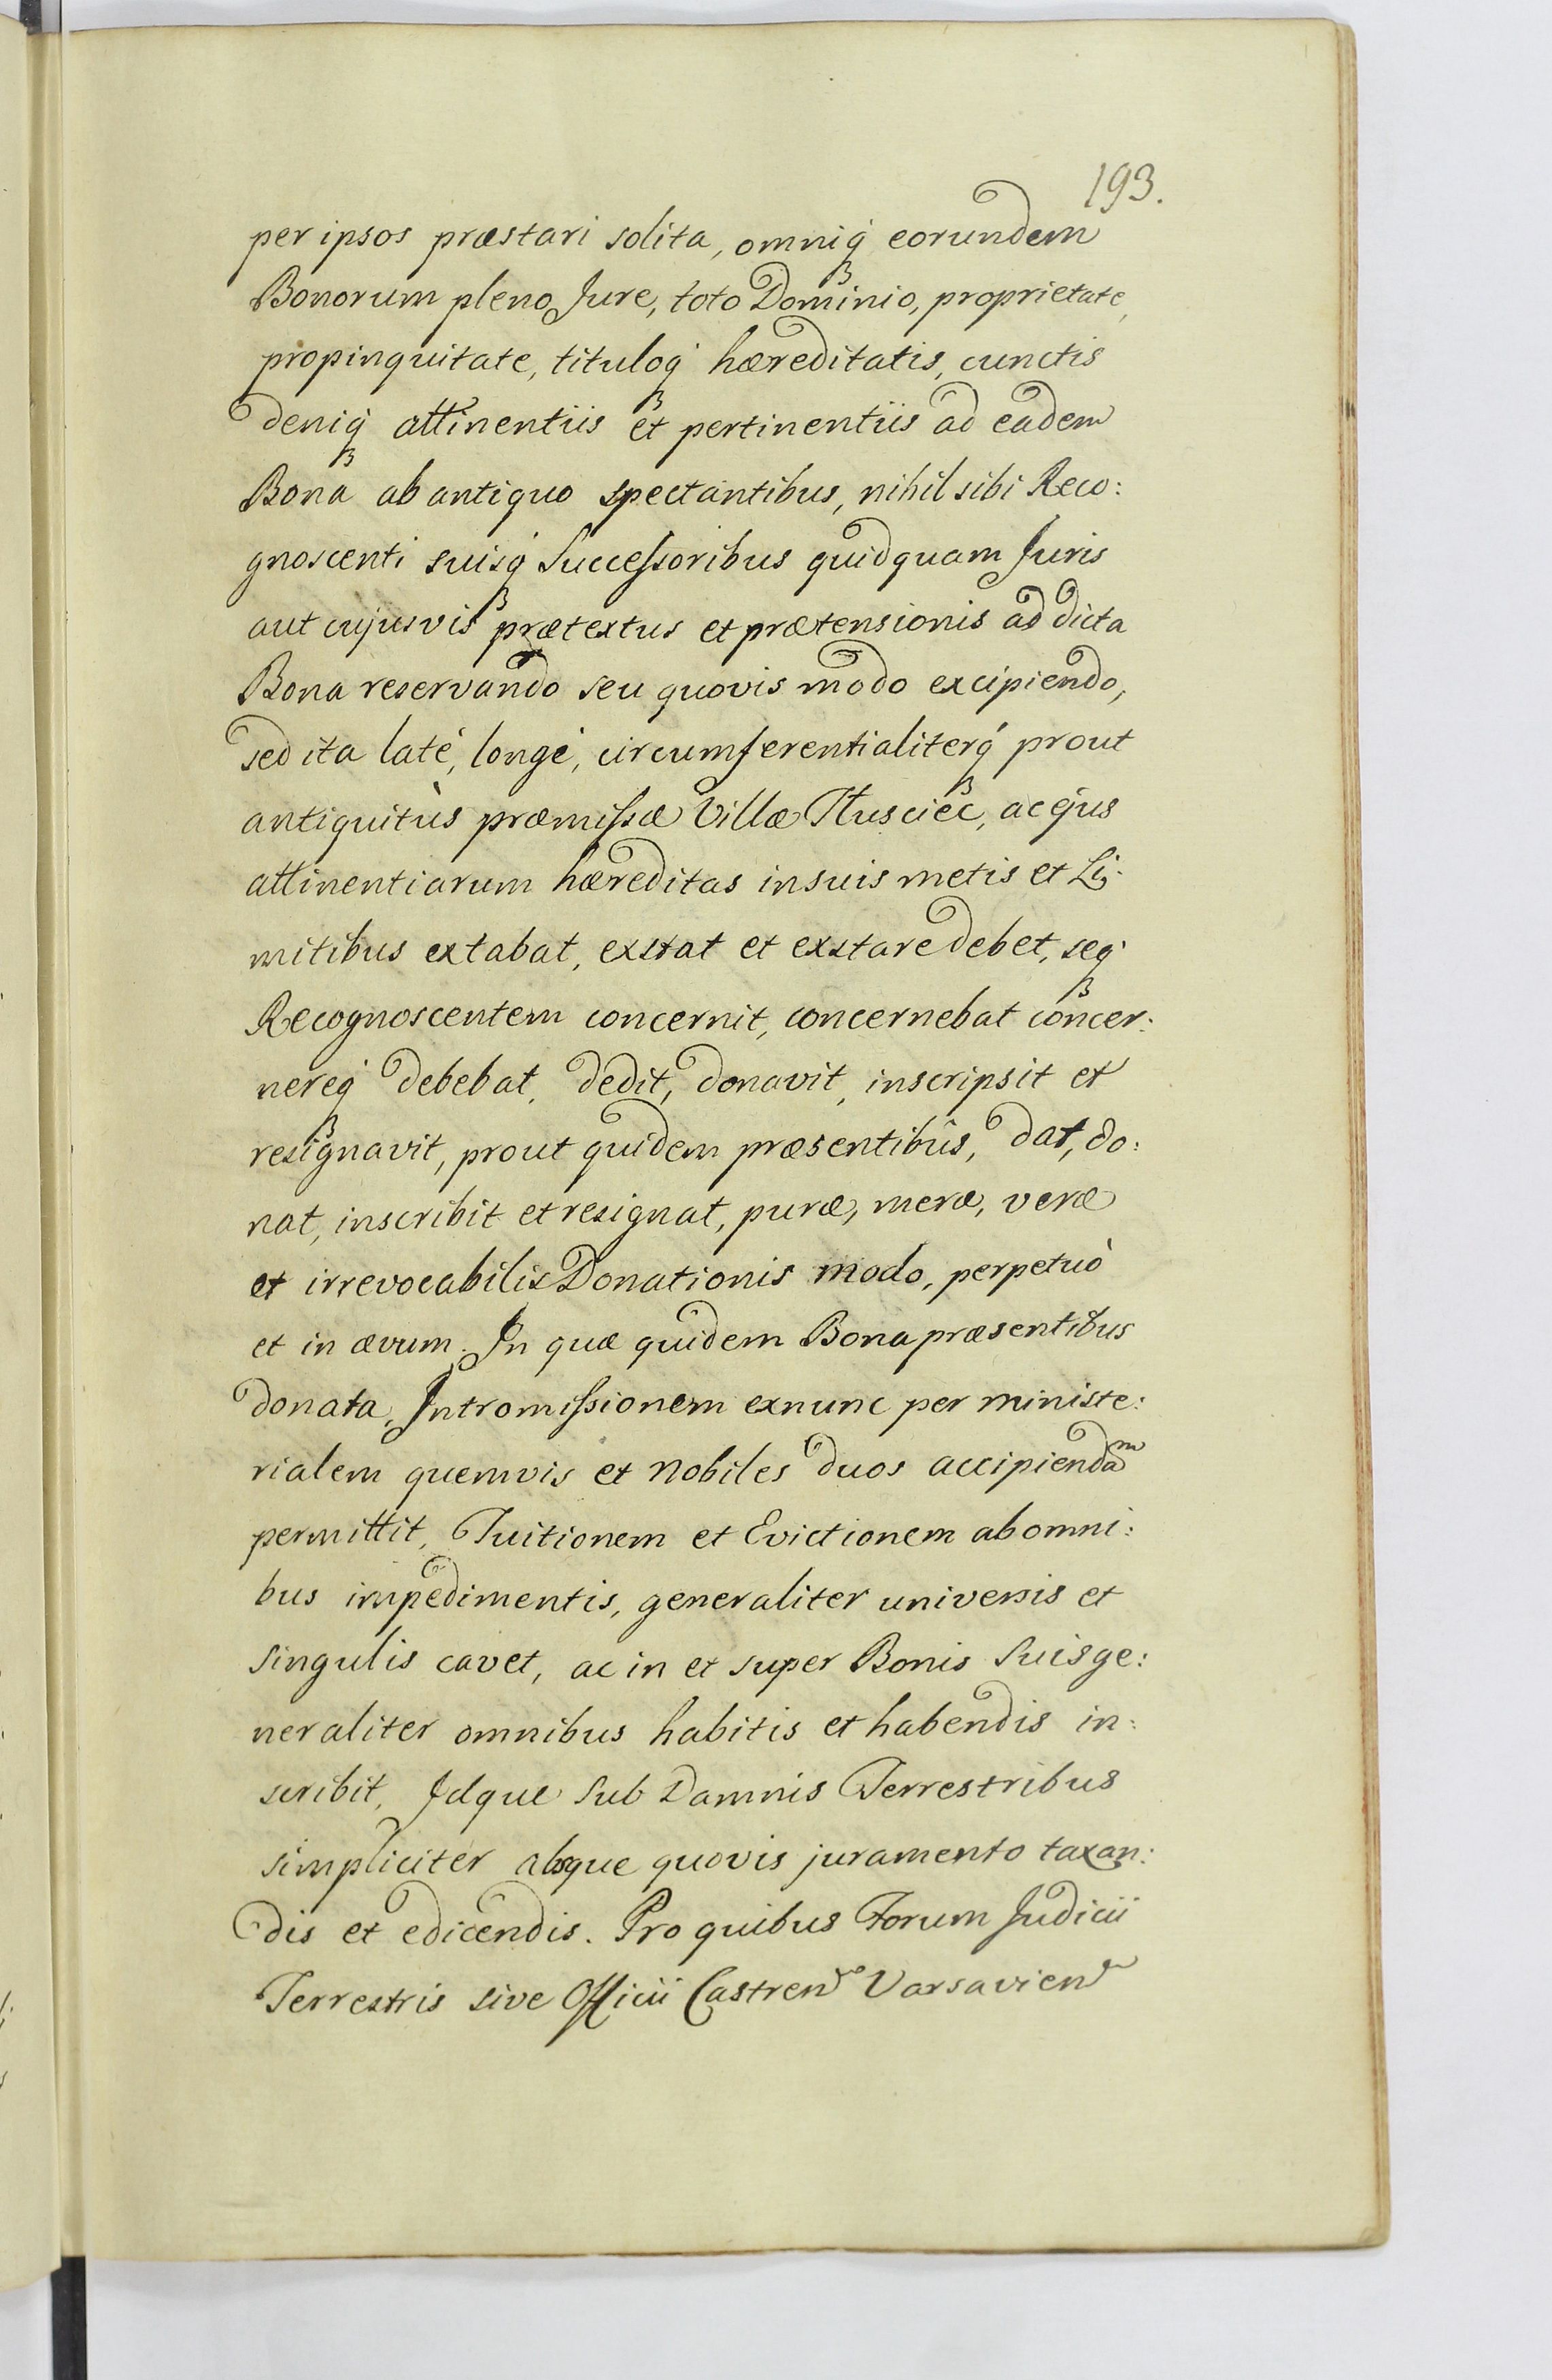 193.
per ipsos præstari solita, omniq́ꝫ eorundem
Bonorum pleno Jure, toto Dominio, proprietate,
propinquitate, tituloq́ꝫ hæreditatis, cunctis
deniq́ꝫ attinentiis et pertinentiis ad eadem
Bona ab antiquo spectantibus, nihil sibi Reco:
gnoscenti suisq́ꝫ Succeſsoribus quidquam Juris
aut cujusvis prætextus et prætensionis ad dicta
Bona reservando seu quovis modo excipiendo,
sed ita laté, longé, circumferentialiterq́ꝫ prout
antiquitùs præmiſsæ Villæ Tłuscieć, ac ejus
attinentiarum hæreditas in suis metis et Li:
mitibus extabat, exstat et exstare debet, seq́ꝫ
Recognoscentem concernit, concernebat concer:
nereq́ꝫ debebat, dedit, donavit, inscripsit et
resignavit, prout quidem præsentibûs, dat, do:
nat, inscribit et resignat, puræ, meræ, veræ
et irrevocabilis Donationis modo, perpetuò
et in ævum. In quæ quidem Bona præsentibus
donata, Intromiſsionem exnunc per ministe:
rialem quemvis et Nobiles duos accipiendaᵐ
permittit, Tuitionem et Evictionem ab omni:
bus impedimentis, generaliter universis et
singulis cavet, ac in et super Bonis Suis ge:
neraliter omnibus habitis et habendis in:
scribit, Idque Sub Damnis Terrestribus
simpliciter absque quovis juramento taxan:
dis et edicendis. Pro quibus Forum Judicii
Terrestris sive Officii Castren Varsavien